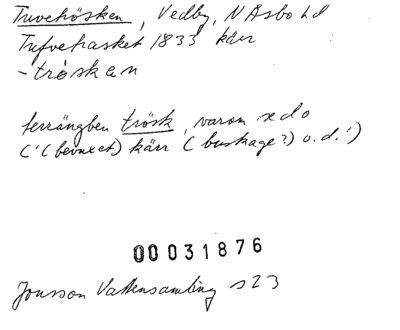 Tuvehösken, Vedby, N Åsbo hd
Tufvehasket 1833 kärr
-trösken
terrängben trösk, varom se do
('(bevuxet) kärr (buskage?) o.d.')
00031876
Jonsson Vattensamling s 23